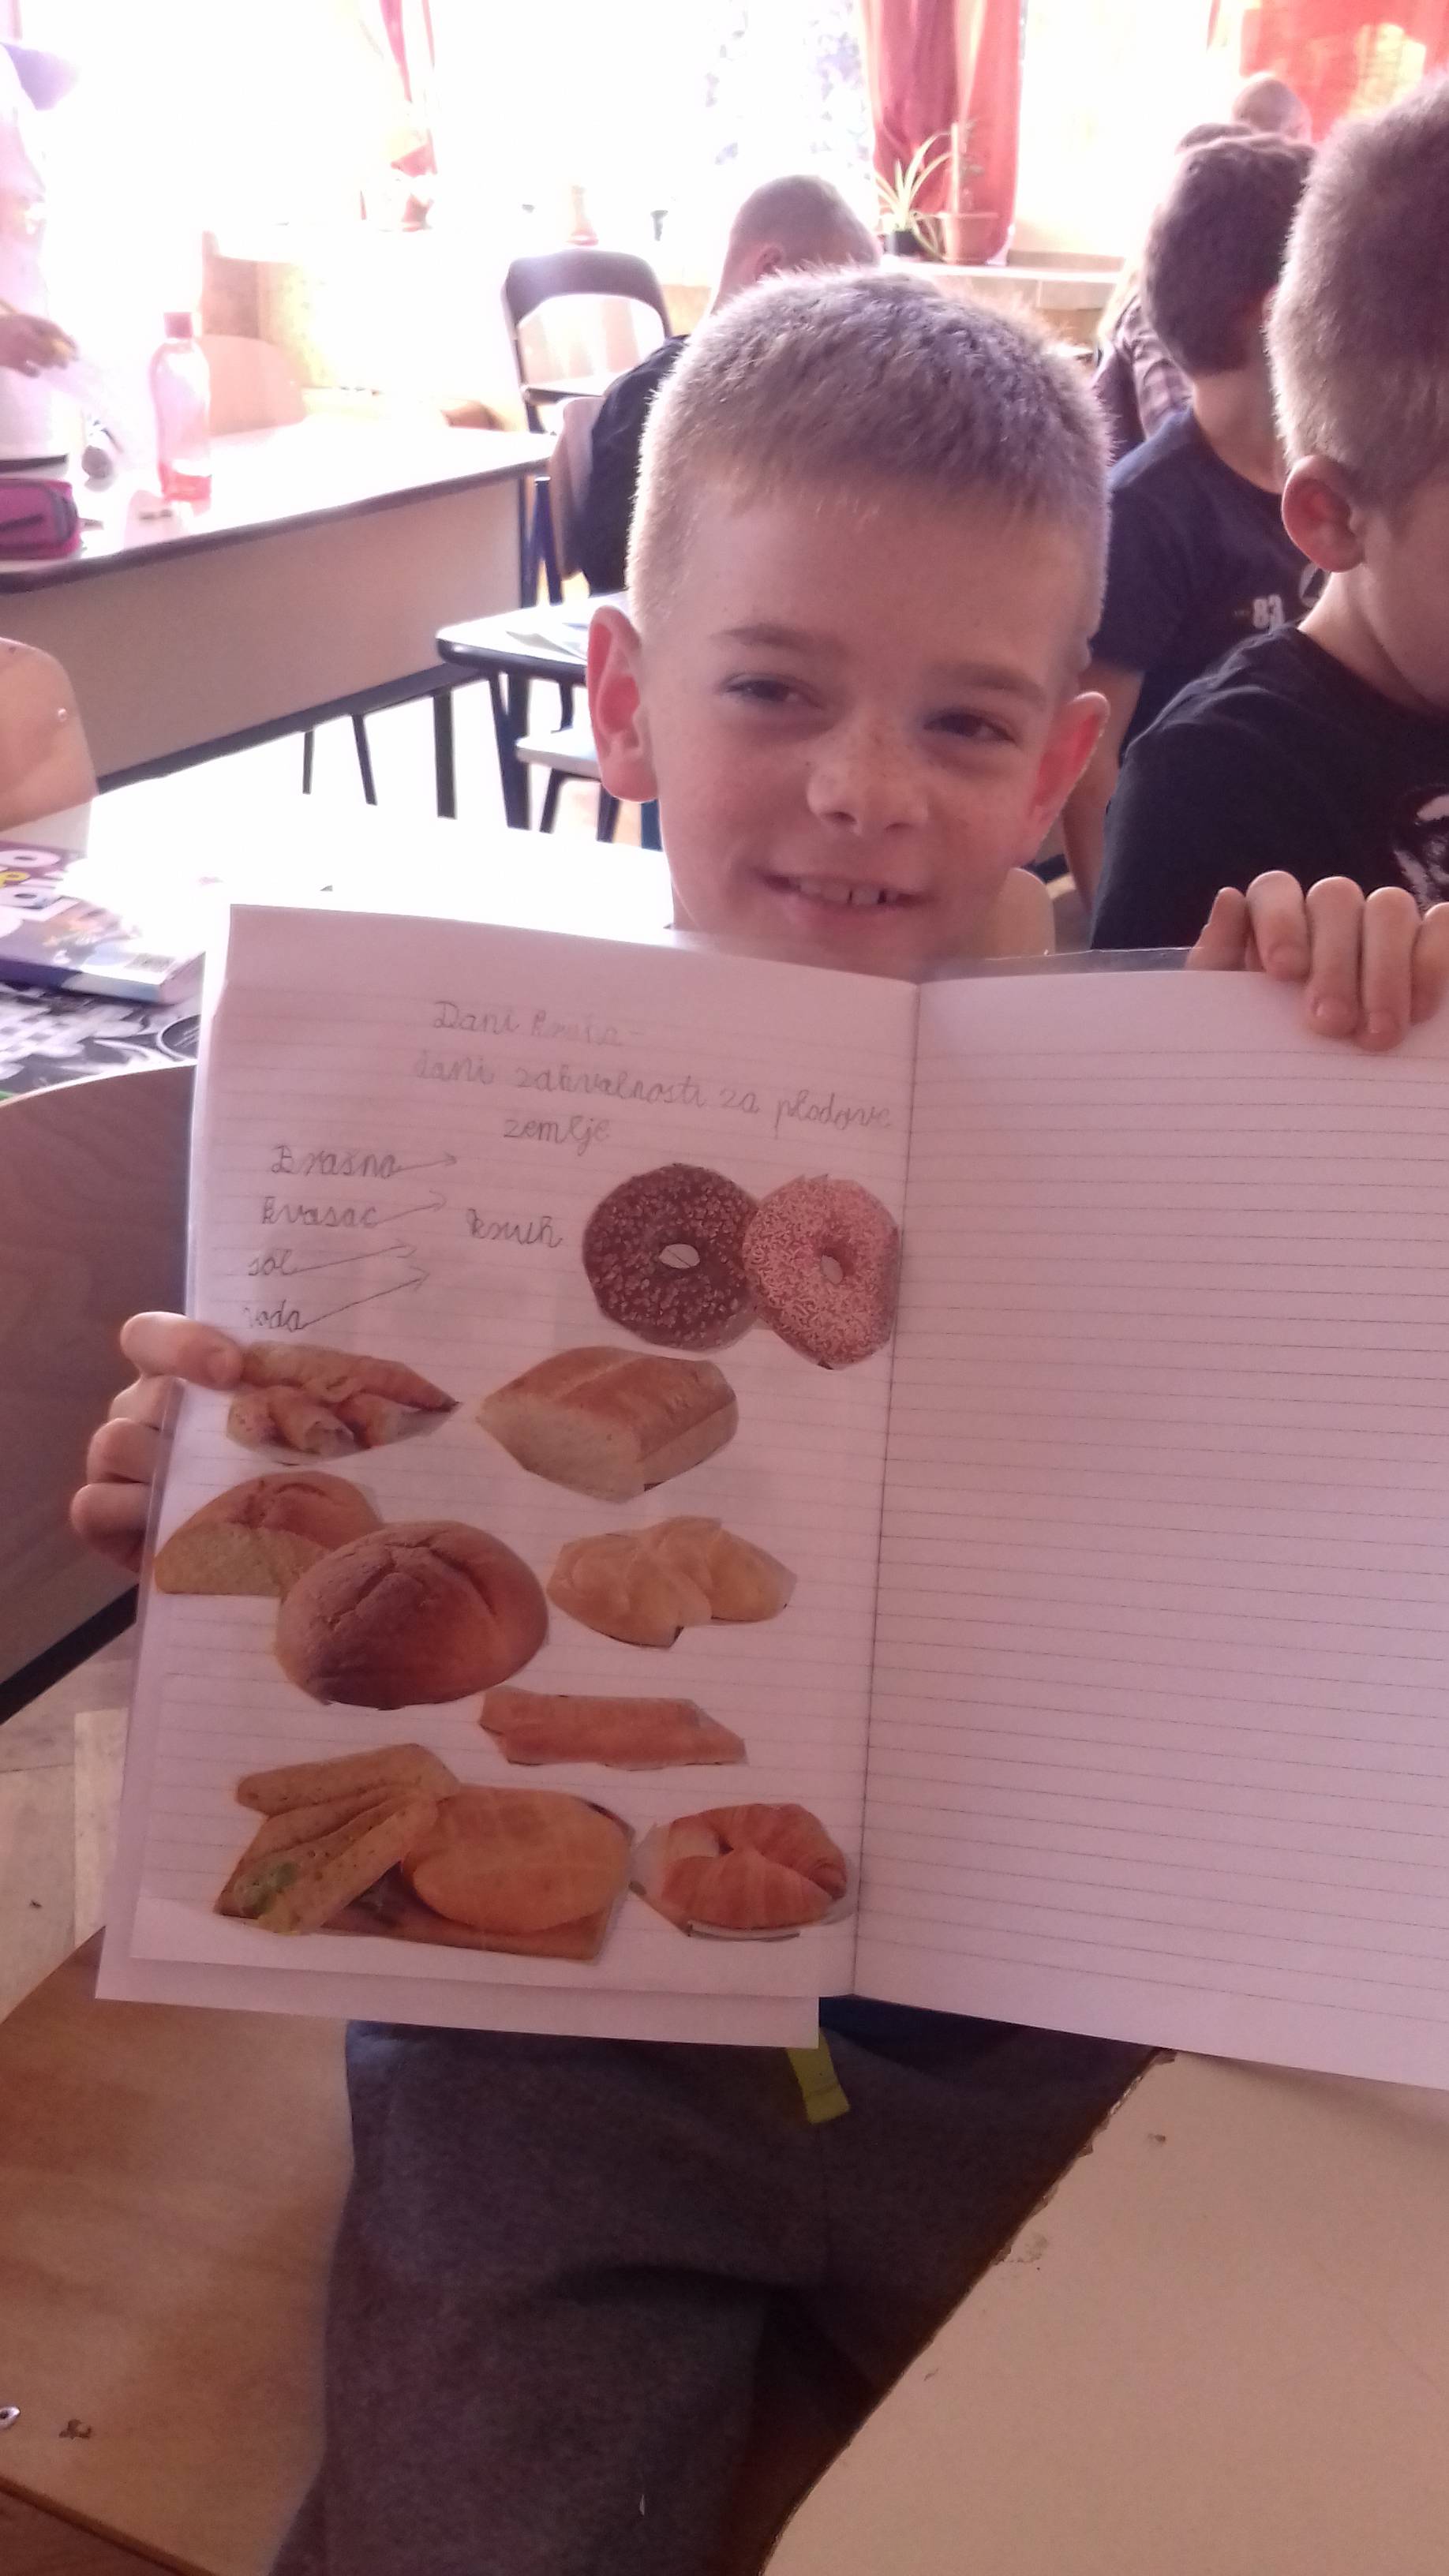 Dani kruha-
dani zahvalnosti za plodove
zemlje
Brašno
kvasac kruh
sol
voda
83